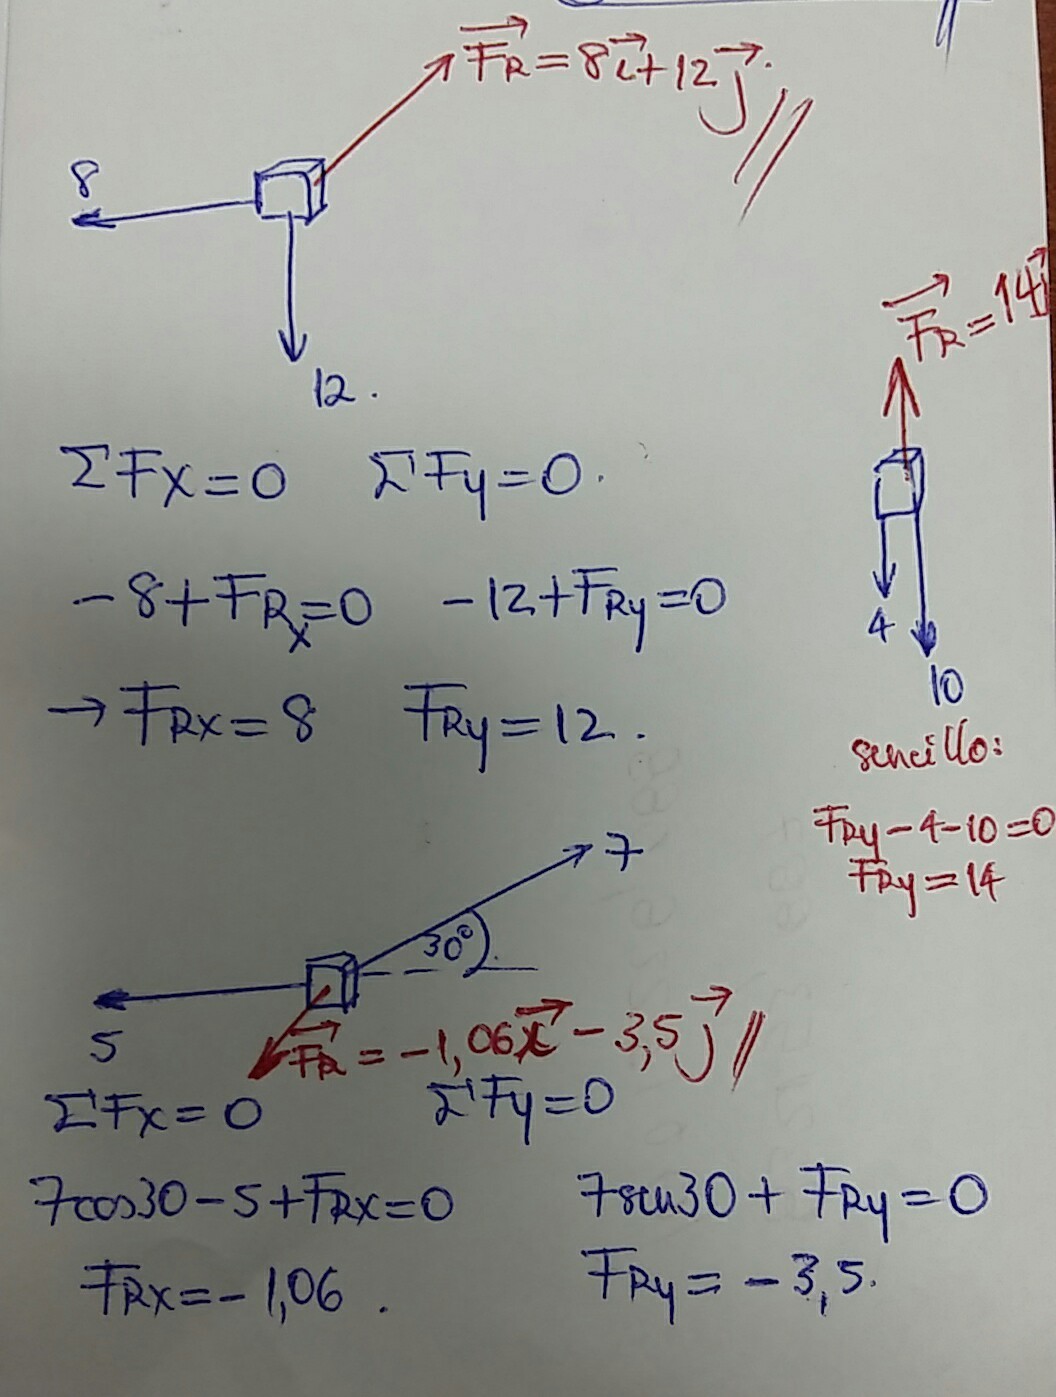 F⃗R = 8i⃗ + 12j⃗.
8
12.
ΣFx=0 ΣFy=0.
-8+FRx=0 -12+FRy=0
→ FRx=8 FRy=12.
F⃗R=14j⃗
4
10
sencillo:
FRy-4-10=0
FRy=14
7
30°
5
F⃗R = -1,06i⃗ - 3,5j⃗
ΣFx=0 ΣFy=0
7cos30-5+FRx=0 7sen30+FRy=0
FRx=-1,06. FRy=-3,5.